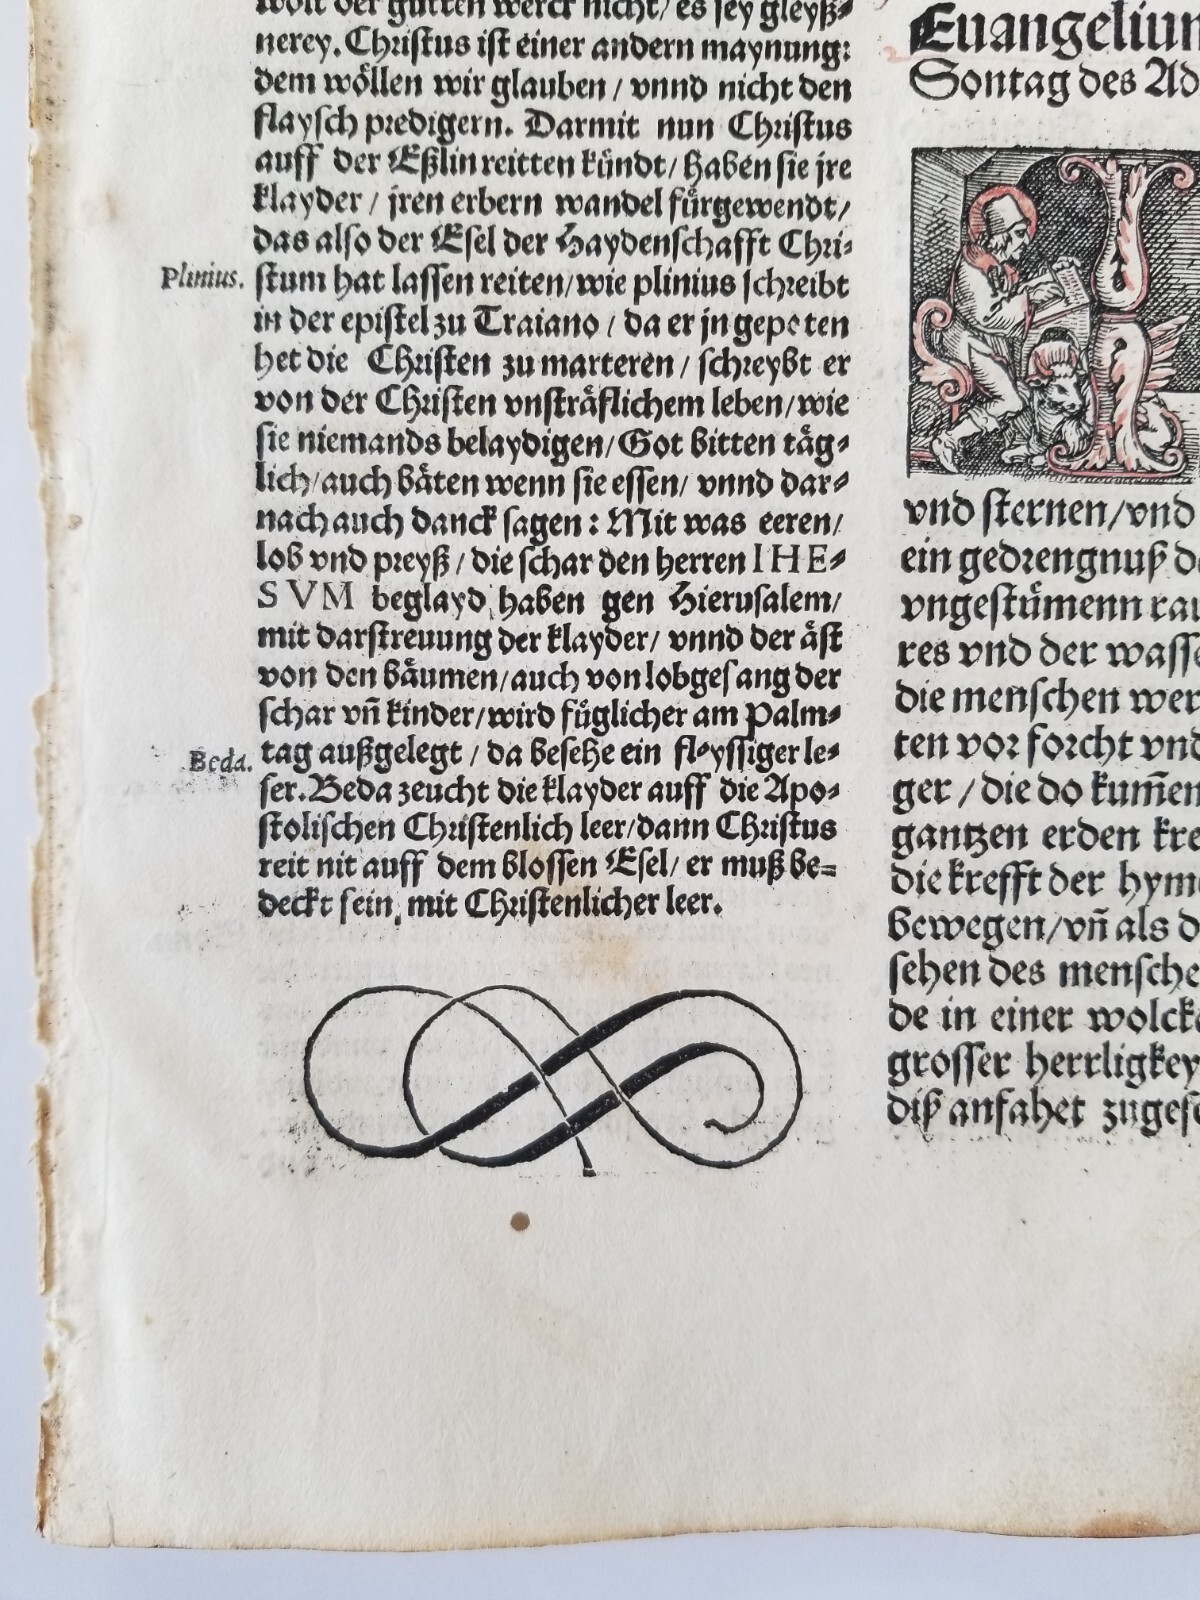 wölt der gůtten werck nicht/ es sey gleyß⸗
nerey. Christus ist einer andern maynung:
dem wöllen wir glauben / vnnd nicht den
flaysch predigern. Darmit nun Christus
auff der Eßlin reitten kündt/ haben sie jre
klayder / jren erbern wandel fürgewendt/
das also der Esel der Haydenschafft Chri⸗
Plinius.
stum hat lassen reiten/wie plinius schreibt
in der epistel zu Traiano / da er jn gepoten
het die Christen zu marteren / schreybt er
von der Christen vnsträflichem leben/wie
sie niemands belaydigen/Got bitten täg⸗
lich/auch bäten wenn sie essen/ vnnd dar⸗
nach auch danck sagen: Mit was eeren/
lob vnd preyß / die schar den herren IHE⸗
SVM beglayd haben gen Hierusalem/
mit darstreuung der klayder/ vnnd der äst
von den bäumen/auch von lobgesang der
schar vñ kinder/wird füglicher am Palm⸗
Beda.
tag außgelegt / da besehe ein fleyssiger le⸗
ser. Beda zeucht die klayder auff die Apo⸗
stolischen Christenlich leer/dann Christus
reit nit auff dem blossen Esel/ er muß be⸗
deckt sein, mit Christenlicher leer.
Euangelium
Sontag des Ad
I
vnd sternen/vnd
ein gedrengnuß d
vngestümenn rau
res vnd der wasse
die menschen wer
ten vor forcht vnd
ger / die do kum̃en
gantzen erden kre
die krefft der hym
bewegen/vñ als d
sehen des mensche
de in einer wolck
grosser herrligkey
diß anfahet zuges